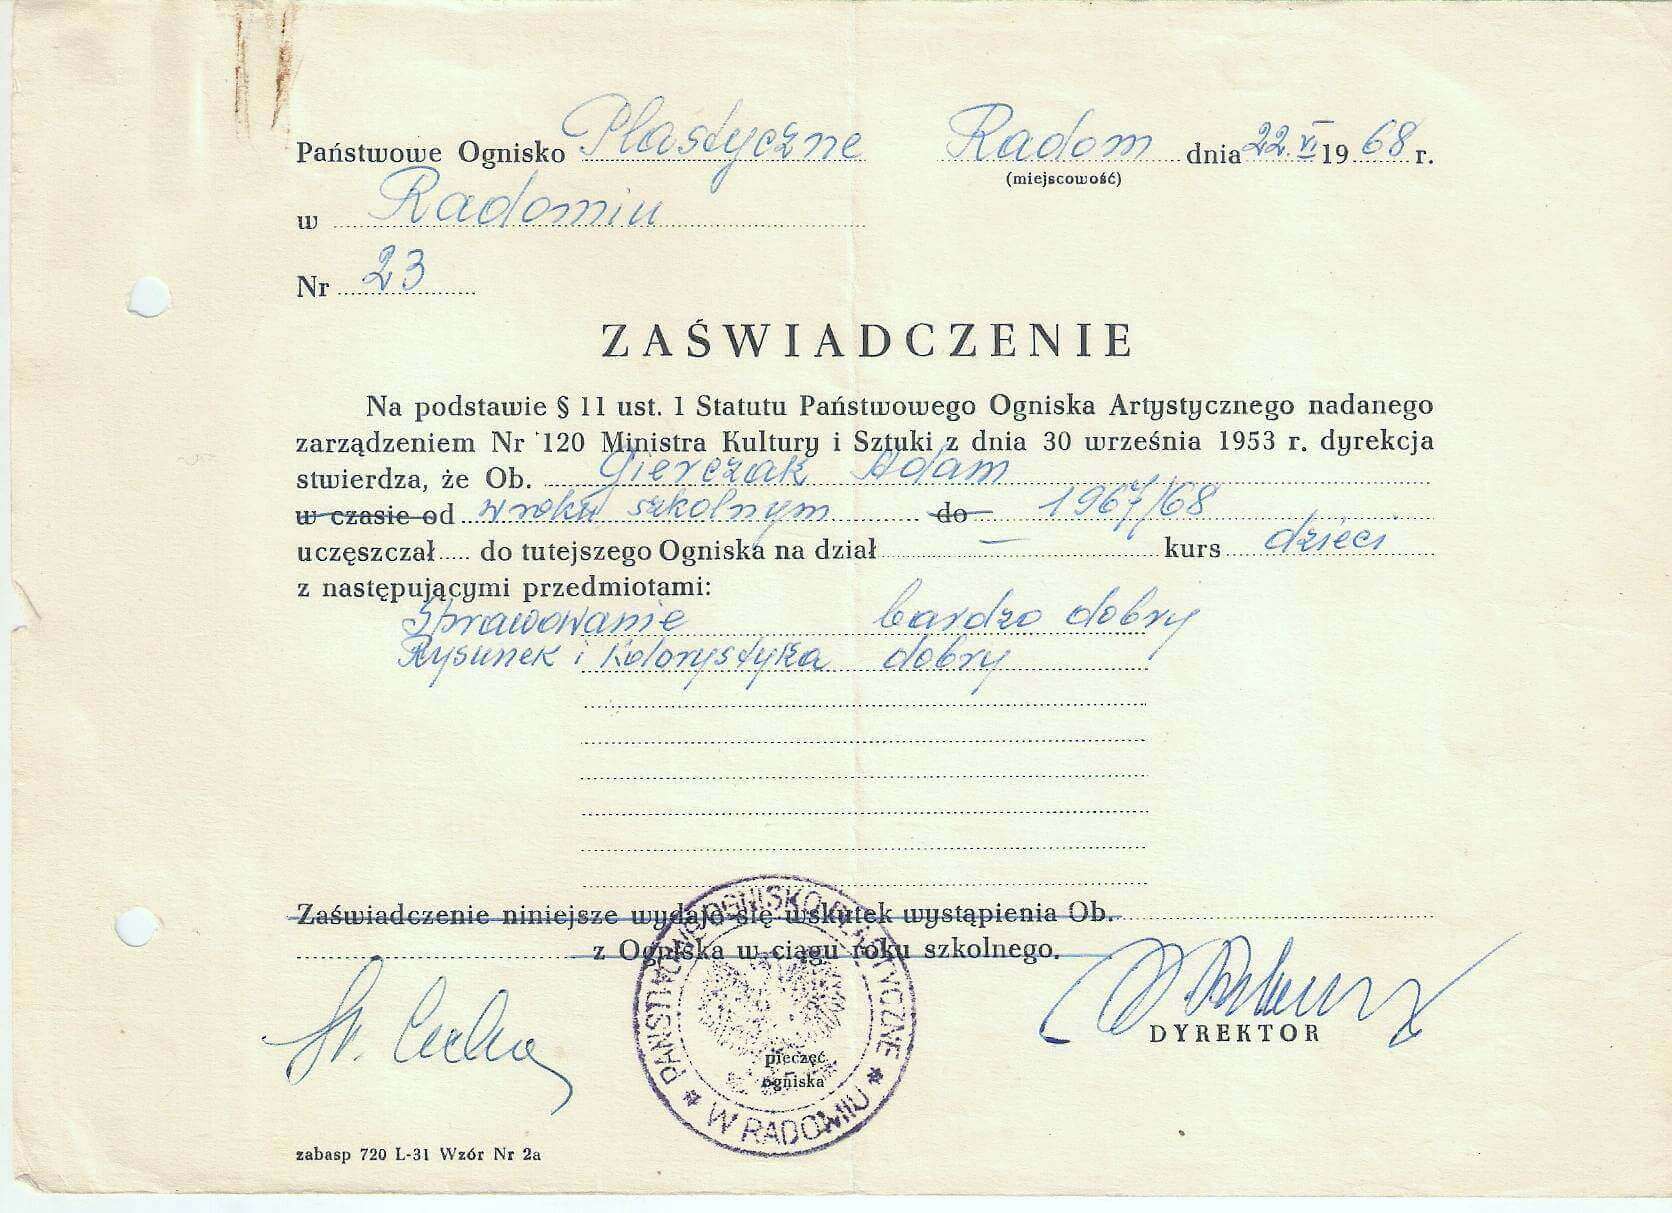 Państwowe Ognisko Plastyczne Radom dnia 22 VI 1968 r.
(miejscowość)
w Radomiu
Nr 23
ZAŚWIADCZENIE
Na podstawie § 11 ust. 1 Statutu Państwowego Ogniska Artystycznego nadanego
zarządzeniem Nr 120 Ministra Kultury i Sztuki z dnia 30 września 1953 r. dyrekcja
stwierdza, że Ob. Gierczak Adam
w czasie od w roku szkolnym do 1967/68
uczęszczał do tutejszego Ogniska na dział — kurs dzieci
z następującymi przedmiotami:
Sprawowanie bardzo dobry
Rysunek i Kolorystyka dobry
Zaświadczenie niniejsze wydaje się wskutek wystąpienia Ob.
z Ogniska w ciągu roku szkolnego.
St.
DYREKTOR
PAŃSTWOWE OGNISKO PLASTYCZNE
W RADOMIU
pieczęć
ogniska
zabasp 720 L-31 Wzór Nr 2a